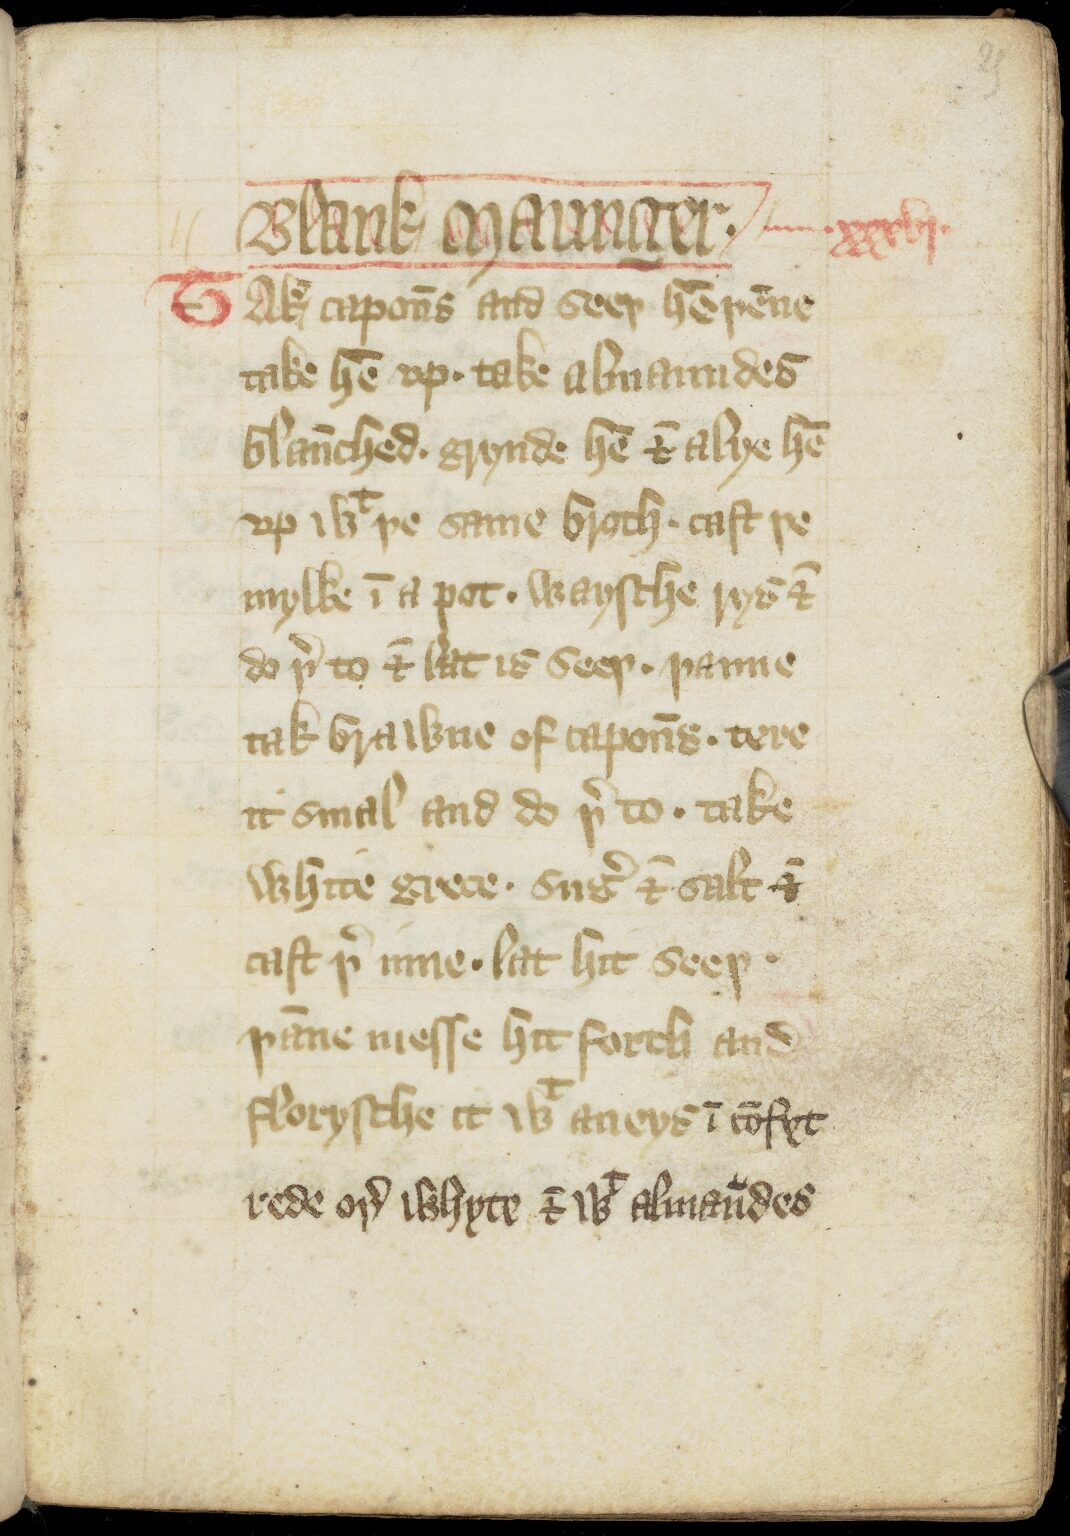 25
Blank Maunger. xxxvj.
TAk capoñs and seeþ hē þēne
take hē vp. take almaundes
blañched. grynde hē ⁊ alye hē
vp wᵗ þe same broth. cast þe
mylke ī a pot. waysche rys ⁊
do þ̉ to ⁊ lat is seeþ. þanne
tak brawne of capoñs. tere
it smal and do þ̉ to. take
white grece. sug̉ ⁊ salt ⁊
cast þ̉ inne. lat hit seeþ.
þāne messe hit forth and
florysche it wᵗ aneys ī cōfyt
rede oþ̉ whyte ⁊ wᵗ almaūdes